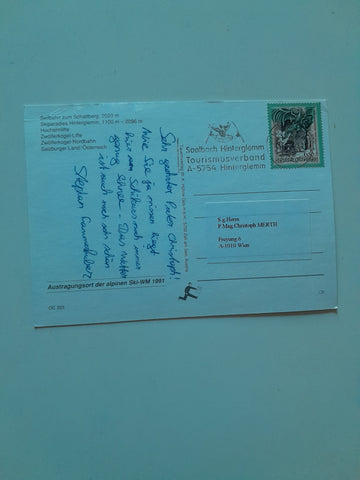 Seilbahn zum Schattberg, 2020 m
Skiparadies Hinterglemm, 1100 m – 2096 m
Hochalmlifte
Zwölferkogel-Lifte
Zwölferkogel-Nordbahn
Salzburger Land/Österreich
Sehr geehrter Pater Christoph!
Wie Sie ja wissen liegt
hier am Schikurs noch immer
genug Schnee - Das Wetter
ist auch noch sehr schön
Stephan
Austragungsort der alpinen Ski-WM 1991
OG 323
Saalbach Hinterglemm
Tourismusverband
A-5754 Hinterglemm
S.g.Herrn
P.Mag.Christoph MERTH
Freyung 6
A-1010 Wien